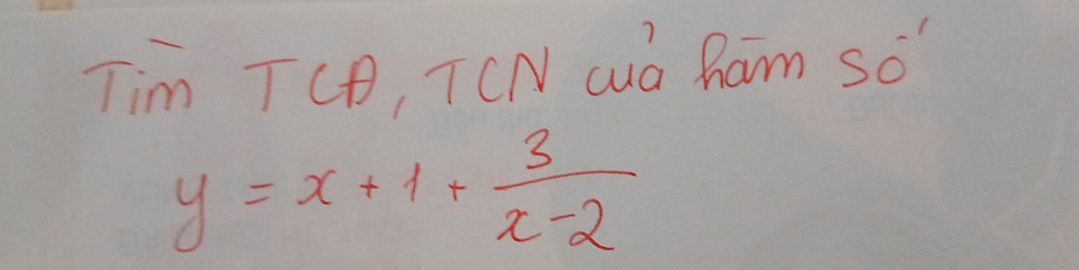 Tìm TCĐ, TCN của hàm số
y = x + 1 + \frac{3}{x-2}